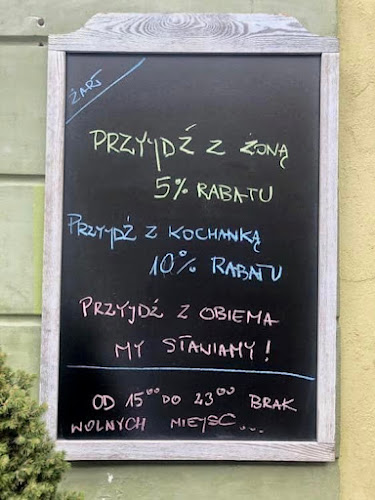 ŻART
PRZYJDŹ Z ŻONĄ
5% RABATU
PRZYJDŹ Z KOCHANKĄ
10% RABATU
PRZYJDŹ Z OBIEMA
MY STAWIAMY!
OD 15⁰⁰ DO 23⁰⁰ BRAK
WOLNYCH MIEJSC...